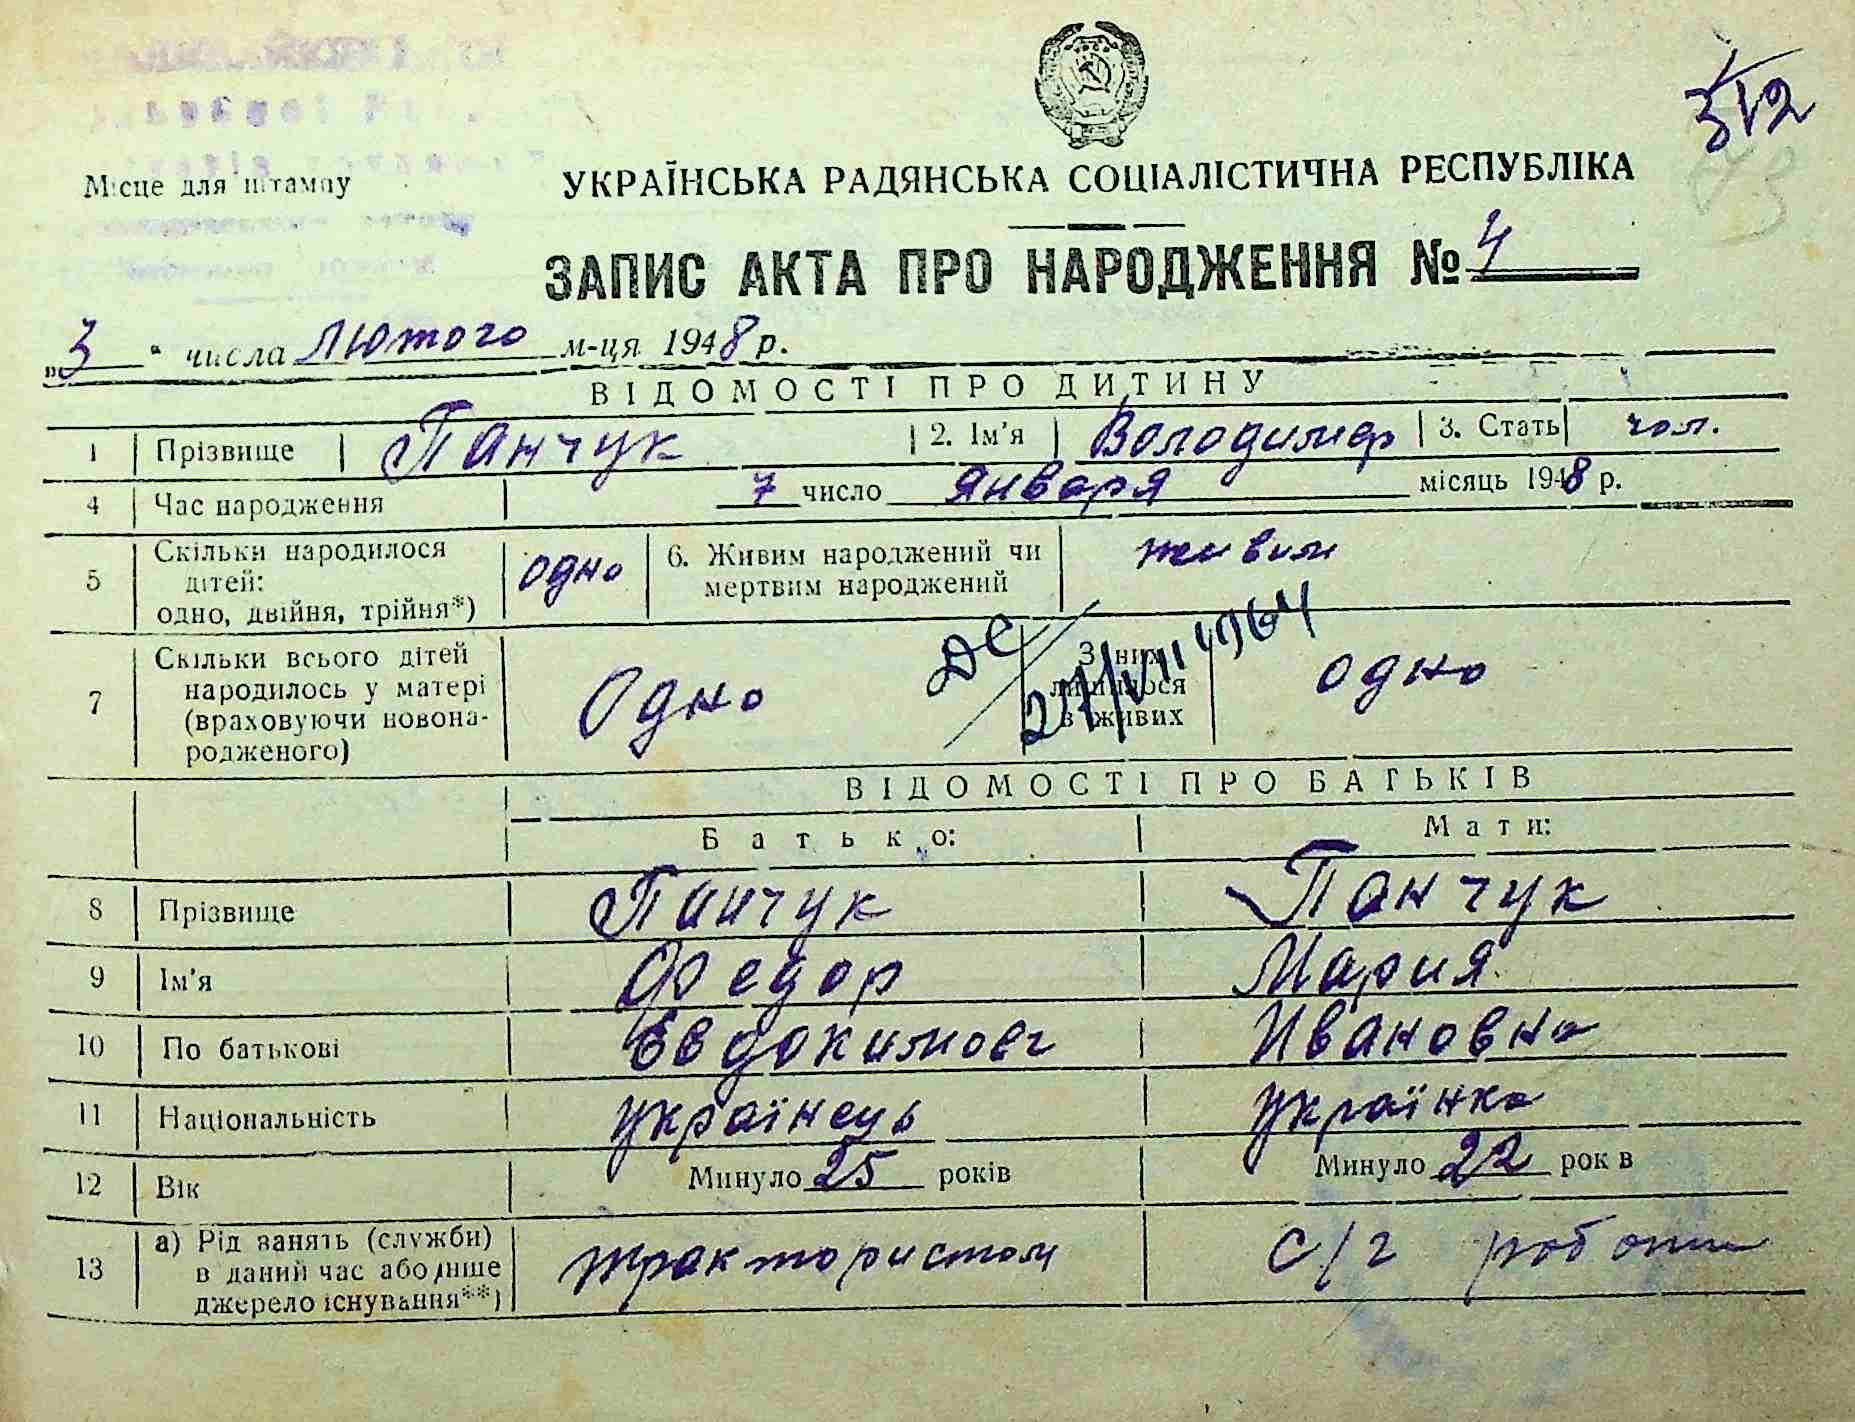 3/12
Місце для штампу
УКРАЇНСЬКА РАДЯНСЬКА СОЦІАЛІСТИЧНА РЕСПУБЛІКА
ЗАПИС АКТА ПРО НАРОДЖЕННЯ № 4
„3" числа лютого м-ця 1948 р.
ВІДОМОСТІ ПРО ДИТИНУ
1 Прізвище Панчук 2. Ім'я Володимер 3. Стать чол.
4 Час народження 7 число января місяць 1948 р.
5 Скільки народилося дітей: одно, двійня, трійня*) одно 6. Живим народжений чи мертвим народжений живим
7 Скільки всього дітей народилось у матері (враховуючи новонародженого) Одно З них лишилося в живих одно
27/VII 1964
ВІДОМОСТІ ПРО БАТЬКІВ
Батько: Мати:
8 Прізвище Панчук Панчук
9 Ім'я Федор Мария
10 По батькові Евдокимовг Ивановна
11 Національність українець українка
12 Вік Минуло 25 років Минуло 22 рок в
13 а) Рід занять (служби) в даний час або інше джерело існування**) трактористом с/г